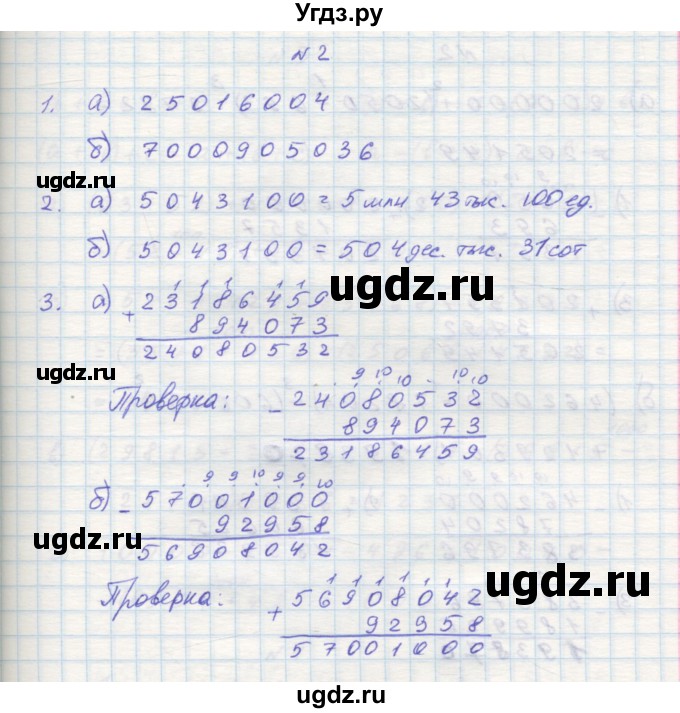 Угдз.ру
№ 2
1. а) 25016004
б) 7000905036
ugdz.ru ugdz.ru
2. а) 5043100 = 5 млн 43 тыс. 100 ед.
б) 5043100 = 504 дес. тыс. 31 сот
1 1 1 1 1
3. а) 23186459
+ 894073
24080532
ugdz.ru
ugdz.ru
9 10 10 10 10
Проверка: - 24080532
894073
23186459
9 9 10 9 9 10
б) - 57001000
92958
56908042
ugdz.ru
1 1 1 1 1 1
Проверка: + 56908042
92958
57001000
ugdz.ru
ugdz.ru ugdz.ru
ugdz.ru